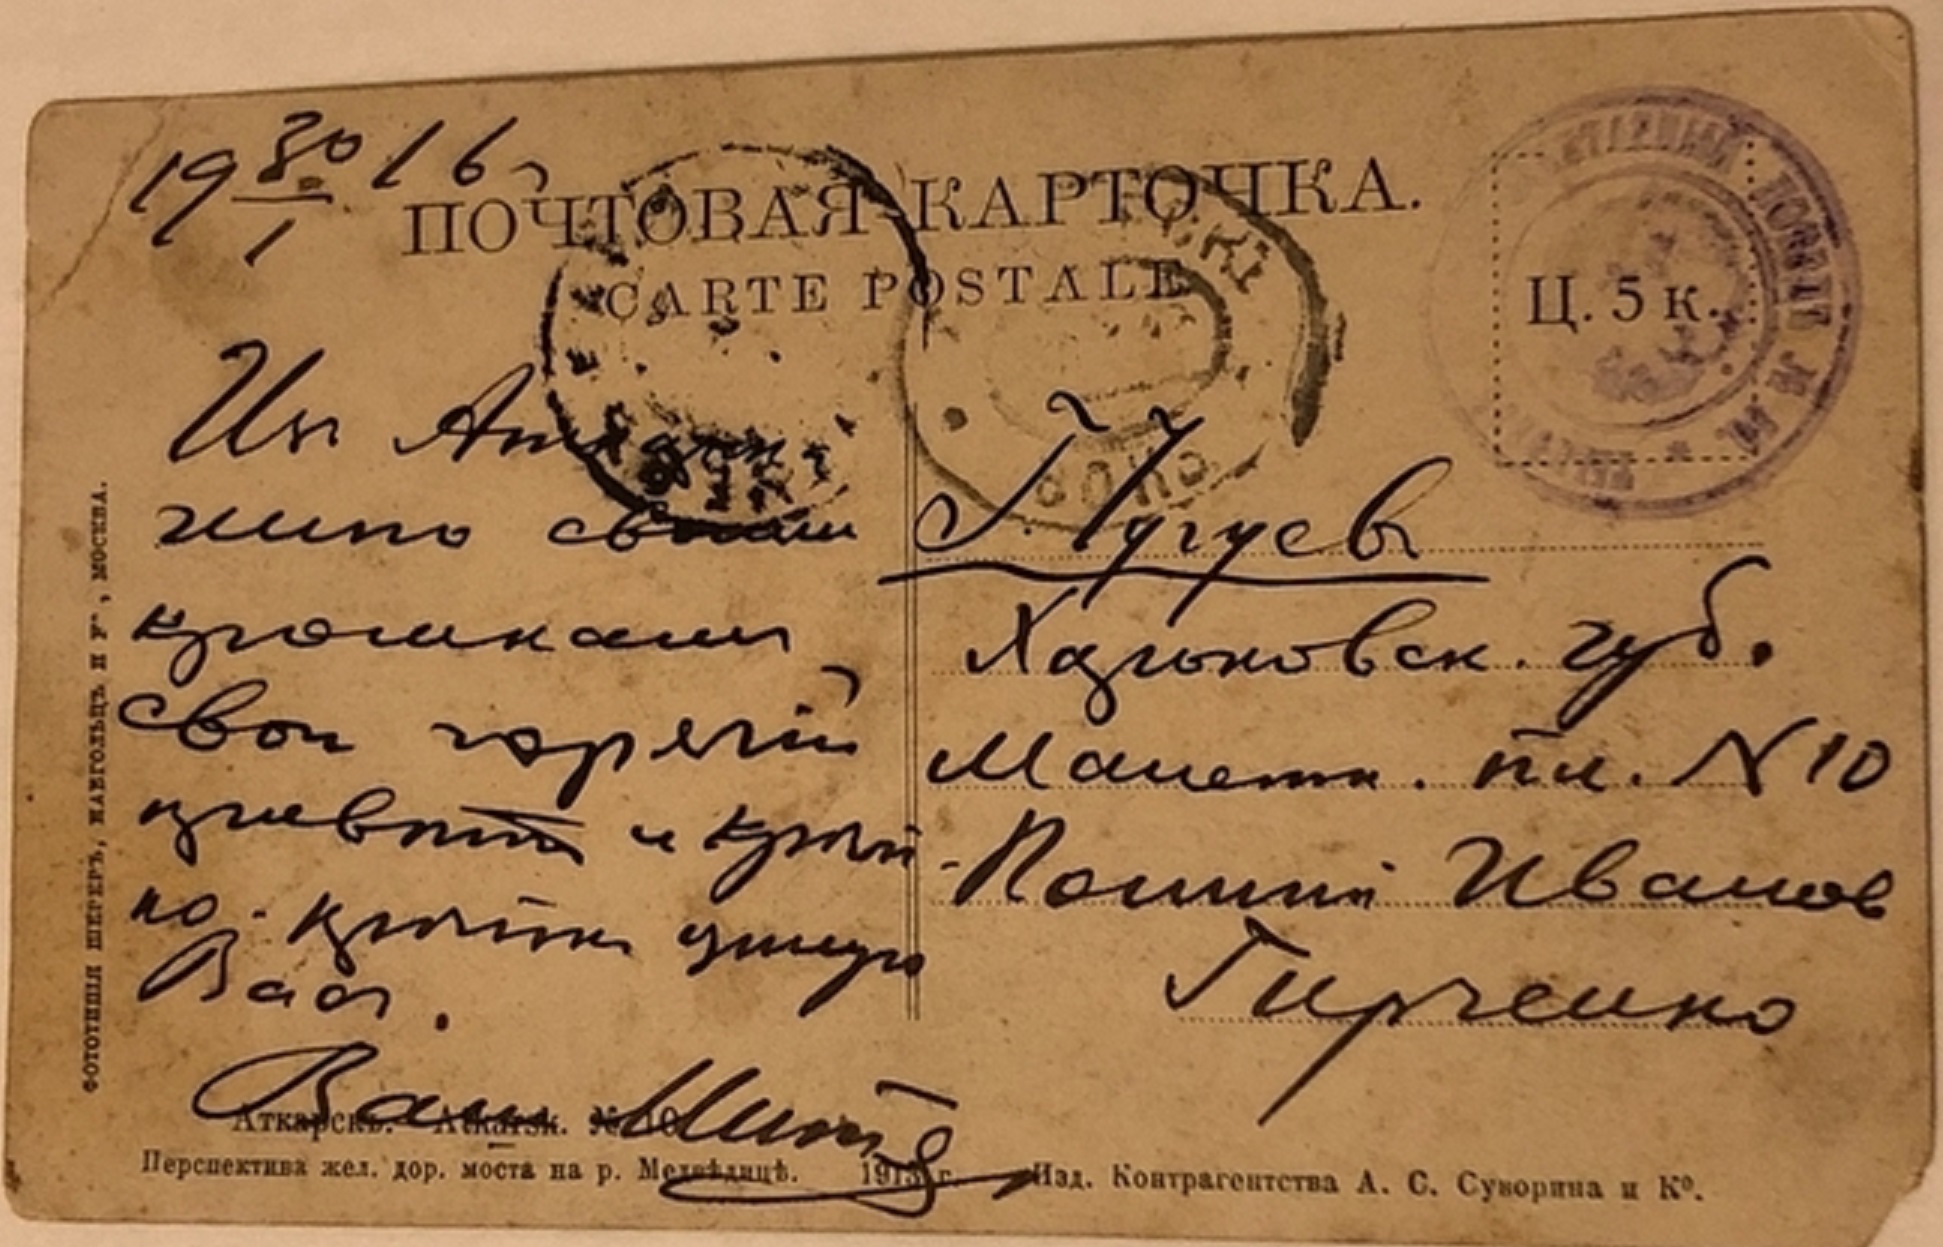 19 30/1 16 г
ПОЧТОВАЯ КАРТОЧКА.
CARTE POSTALE
Ц. 5 к.
Из Аткарска
шлю своим
крошкам
свой горячий
привет и креп-
ко-крепко целую
Вас.
Ваш Митя
Г. Чугуев
Харьковск. губ.
Манежн. пл. N 10
Иванов
Гирченко
ФОТОТИПІЯ ШЕРЕРЪ, НАБГОЛЬЦЪ И Кº, МОСКВА.
Аткарскъ. Atkarsk. № 10
Перспектива жел. дор. моста на р. Медвѣдицѣ. 1913 г. Изд. Контрагентства А. С. Суворина и Кº.